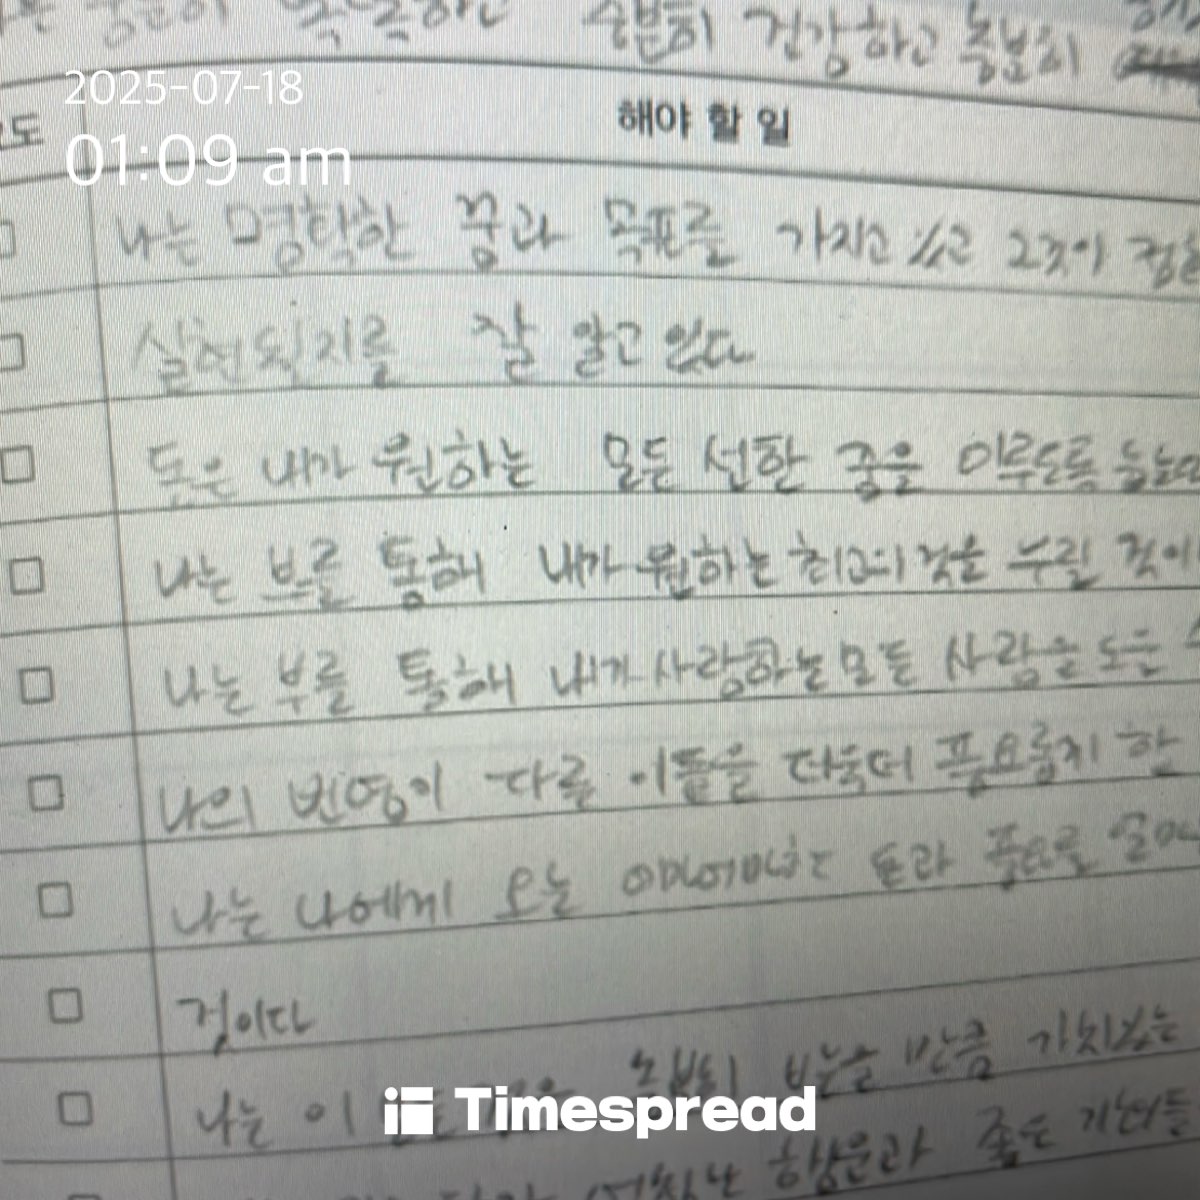 충분히 건강하고 충분히
2025-07-18
해야 할 일
01:09 am
나는 명확한 꿈과 목표를 가지고 있고 그것이
실현될지를 잘 알고 있다
돈은 내가 원하는 모든 선한 꿈을 이루도록
나는 부를 통해 내가 원하는 최고의 것을 누릴 것이
나는 부를 통해 내가 사랑하는 모든 사람을 도운
나의 번영이 다른 이들을 더욱더 풍요롭게 할
나는 나에게 오는 어마어마한 돈과 풍요를
것이다
나는 이 충분히 받을 만큼 가치있는
Timespread
엄청난 행운과 좋은 기회들